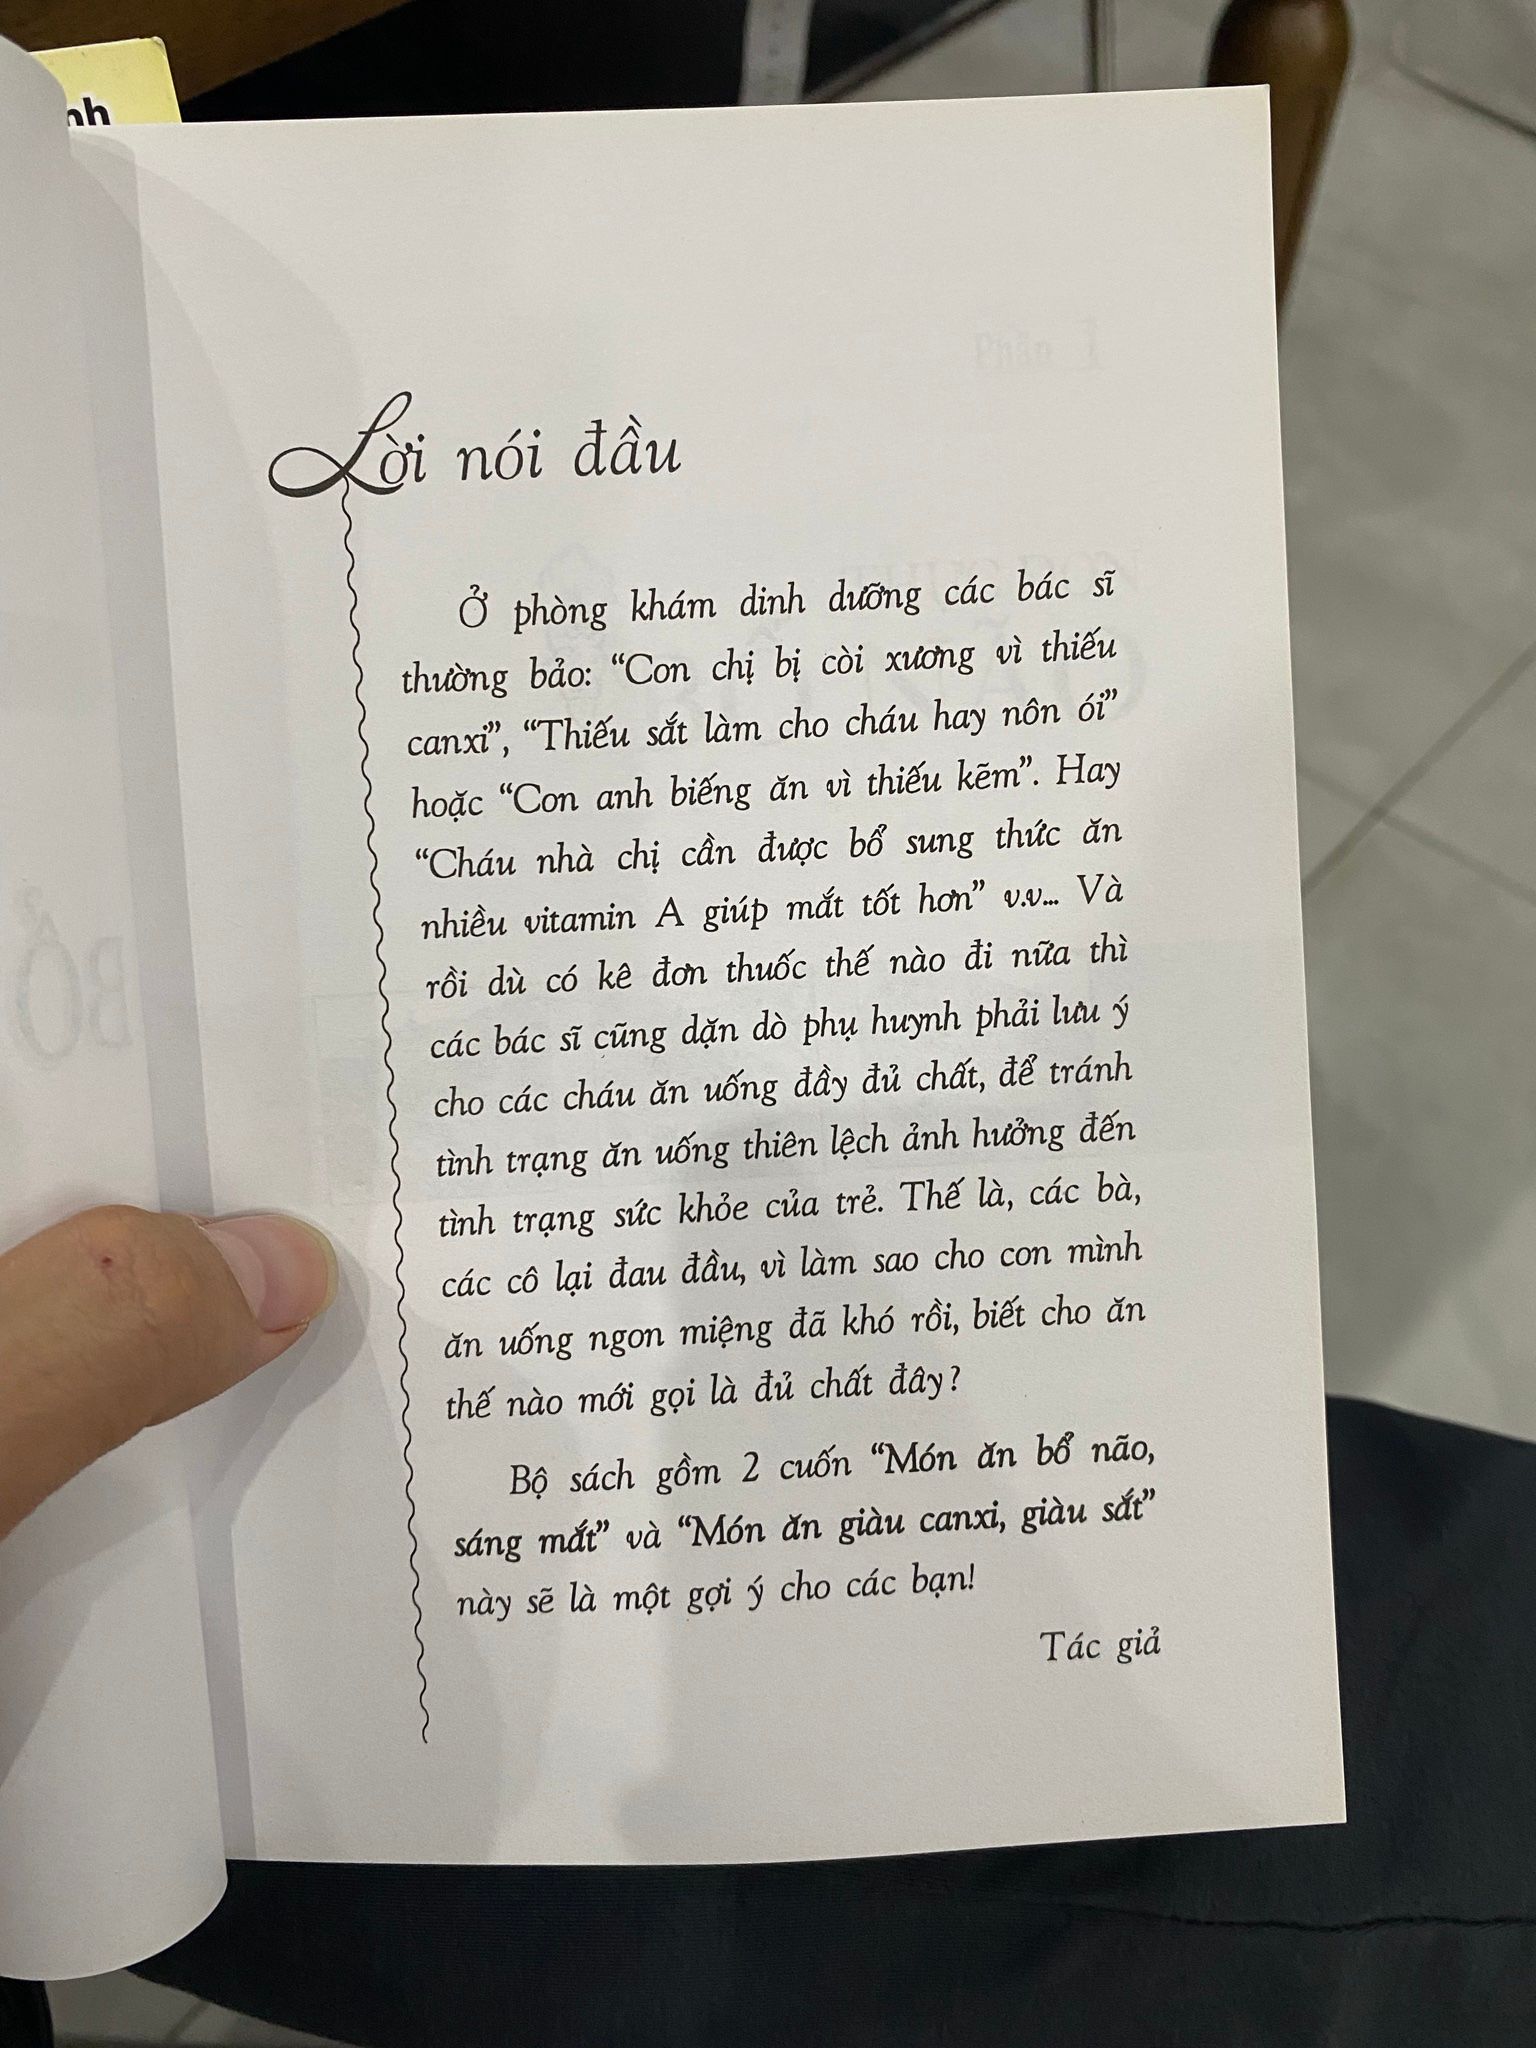 nh
Lời nói đầu
Ở phòng khám dinh dưỡng các bác sĩ
thường bảo: “Con chị bị còi xương vì thiếu
canxi”, “Thiếu sắt làm cho cháu hay nôn ói”
hoặc “Con anh biếng ăn vì thiếu kẽm”. Hay
“Cháu nhà chị cần được bổ sung thức ăn
nhiều vitamin A giúp mắt tốt hơn” v.v... Và
rồi dù có kê đơn thuốc thế nào đi nữa thì
các bác sĩ cũng dặn dò phụ huynh phải lưu ý
cho các cháu ăn uống đầy đủ chất, để tránh
tình trạng ăn uống thiên lệch ảnh hưởng đến
tình trạng sức khỏe của trẻ. Thế là, các bà,
các cô lại đau đầu, vì làm sao cho con mình
ăn uống ngon miệng đã khó rồi, biết cho ăn
thế nào mới gọi là đủ chất đây?
Bộ sách gồm 2 cuốn “Món ăn bổ não,
sáng mắt” và “Món ăn giàu canxi, giàu sắt”
này sẽ là một gợi ý cho các bạn!
Tác giả